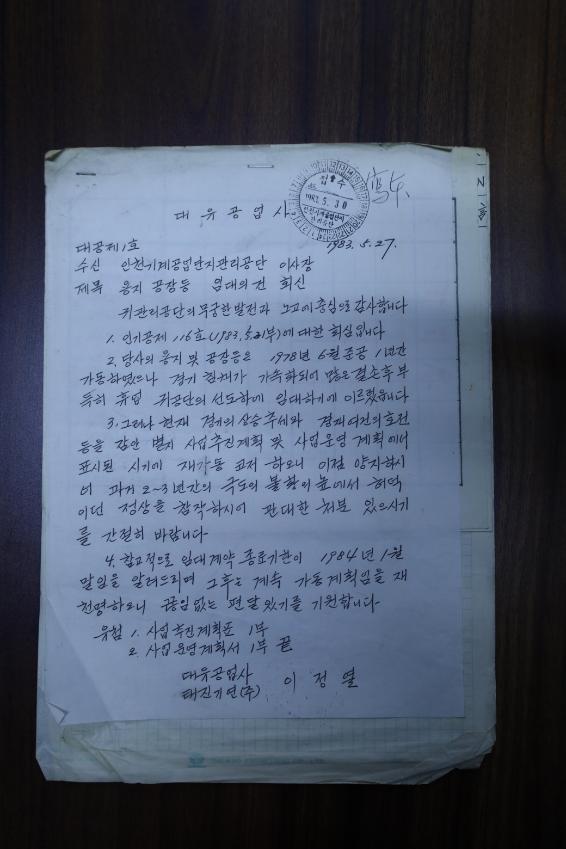 대유공업사
접수
1983. 5. 30
대공제1호
1983. 5. 27.
수신 인천기계공업단지관리공단 이사장
제목 용지 공장등 임대의건 회신
귀관리공단의 무궁한 발전과 노고에 충심으로 감사합니다
1. 인기공제 116호(1983.5.21부)에 대한 회심입니다
2. 당사의 용지 및 공장등은 1978년 6월준공 1년간
가동하였으나 경기 침체가 가속화되어 많은 결손후 부
득히 휴업 귀공단의 선도하에 임대하기에 이르렀읍니다
3. 그러나 현재 경기의 상승추세와 경제여건의 호전
등을 감안 별지 사업추진계획 및 사업운영 계획에서
표시된 시기에 재가동 코저 하오니 이점 양지하시
어 과거 2~3년간의 극도의 불황의 늪에서 허덕
이던 정상을 참작하시어 관대한 처분 있으시기
를 간절히 바랍니다.
4. 참고적으로 임대계약 종료기한이 1984년 1월
말임을 알려드리며 그후는 계속 가동계획임을 재
천명하오니 끊임없는 편달있기를 기원합니다.
유첨 1. 사업추진계획표 1부
2. 사업운영계획서 1부 끝
대유공업사
태진기연(주) 이 정 열